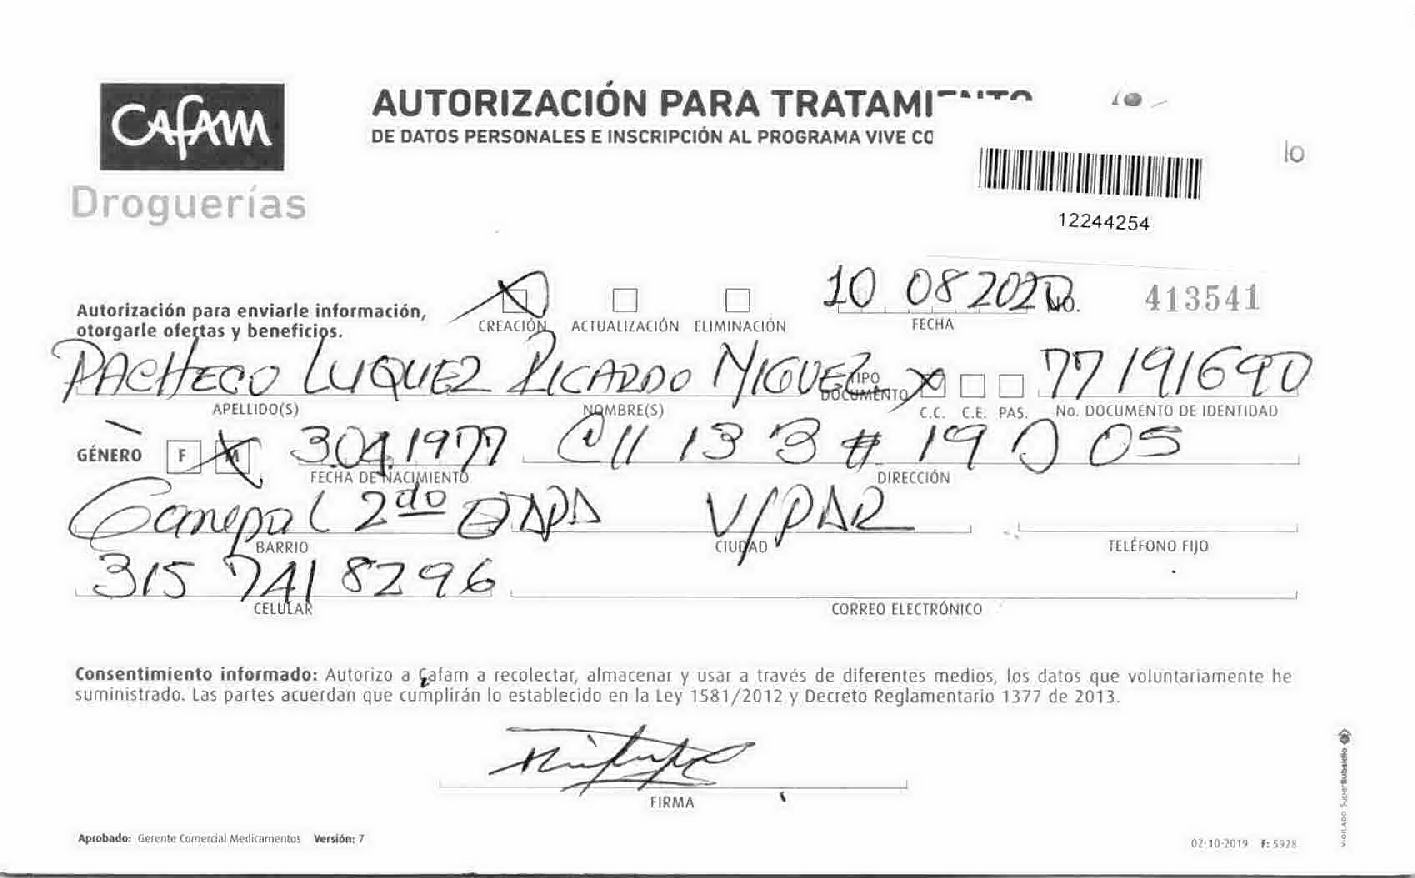 CAFAM
Droguerías
AUTORIZACIÓN PARA TRATAMIENTO
DE DATOS PERSONALES E INSCRIPCIÓN AL PROGRAMA VIVE CO
lo
12244254
Autorización para enviarle información,
otorgarle ofertas y beneficios.
CREACIÓN ACTUALIZACIÓN ELIMINACIÓN
10 08 2020
FECHA
No. 413541
PACHECO LUQUEZ RICARDO MIGUEL
TIPO
DOCUMENTO
77191690
APELLIDO(S) NOMBRE(S) C.C. C.E. PAS. No. DOCUMENTO DE IDENTIDAD
GÉNERO F M 3.04.1977 Cll 13 3 # 19 D 05
FECHA DE NACIMIENTO DIRECCIÓN
2do ETAPA V/PAR
BARRIO CIUDAD TELÉFONO FIJO
315 741 8296
CELULAR CORREO ELECTRÓNICO
Consentimiento informado: Autorizo a Cafam a recolectar, almacenar y usar a través de diferentes medios, los datos que voluntariamente he
suministrado. Las partes acuerdan que cumplirán lo establecido en la Ley 1581/2012 y Decreto Reglamentario 1377 de 2013.
FIRMA
Aprobado: Gerente Comercial Medicamentos Versión: 7
02-10-2019 F: 5928
VIGILADO SuperSubsidio